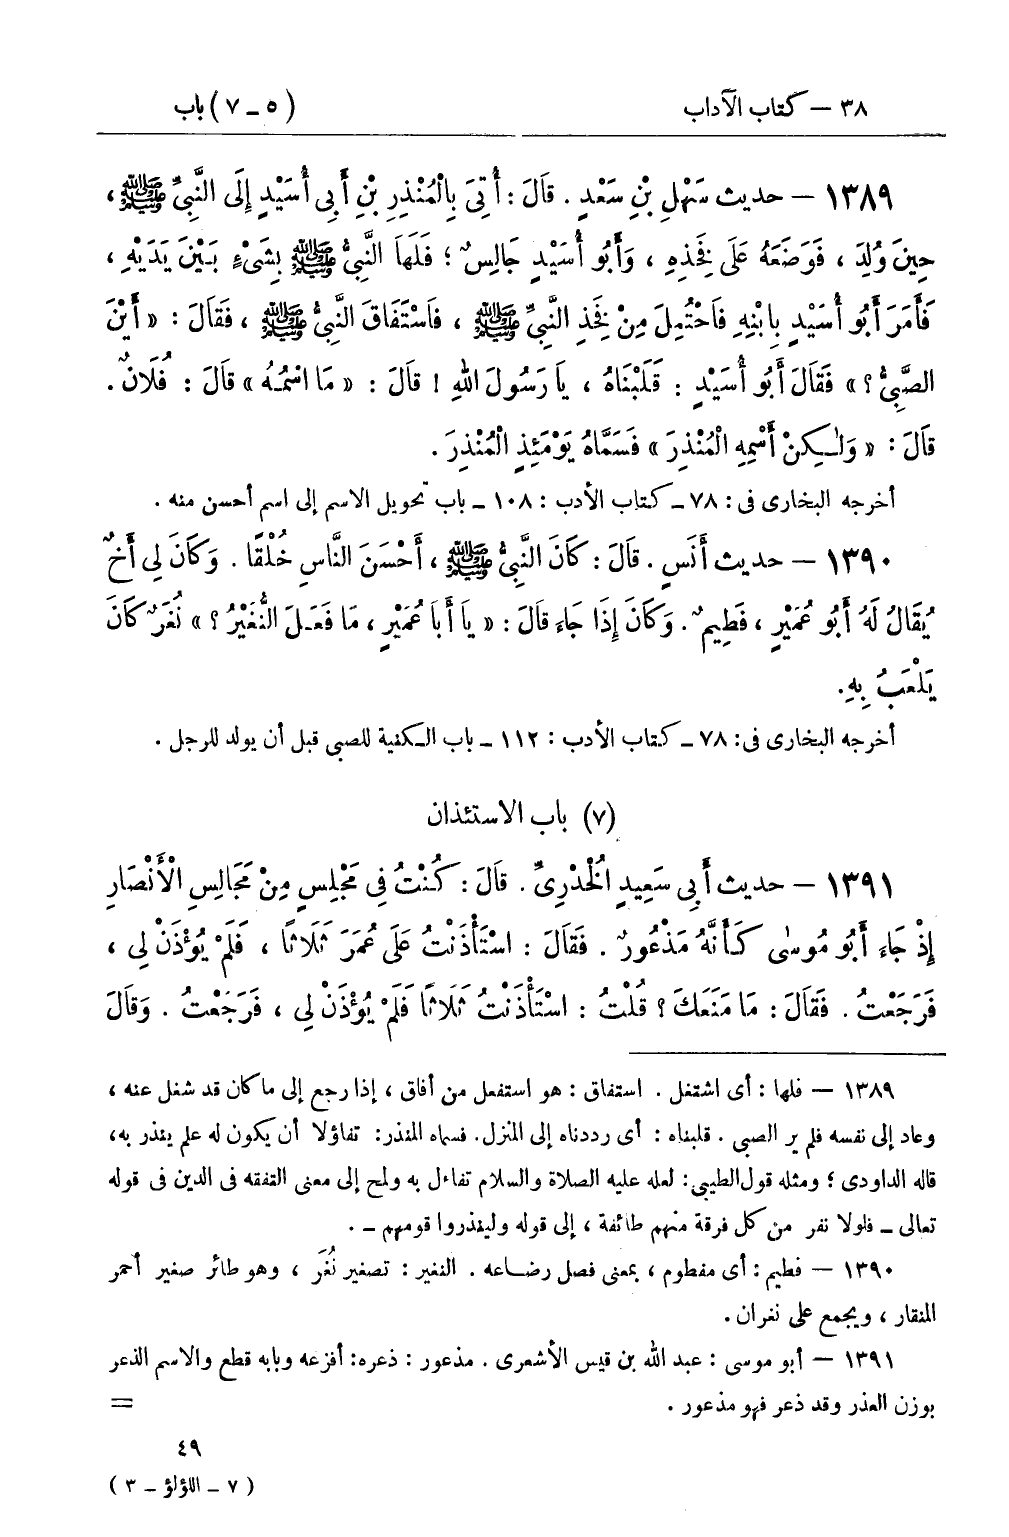 ٣٨ – كتاب الآداب
(٥ – ٧) باب
١٣٨٩ – حديث سَهْلِ بْنِ سَعْدٍ . قَالَ : أُتِيَ بِالْمُنْذِرِ بْنِ أَبِي أُسَيْدٍ إِلَى النَّبِيِّ ﷺ ،
حِينَ وُلِدَ ، فَوَضَعَهُ عَلَى فَخِذِهِ ، وَأَبُو أُسَيْدٍ جَالِسٌ ؛ فَلَهَا النَّبِيُّ ﷺ بِشَيْءٍ بَيْنَ يَدَيْهِ ،
فَأَمَرَ أَبُو أُسَيْدٍ بِابْنِهِ فَاحْتُمِلَ مِنْ فَخِذِ النَّبِيِّ ﷺ ، فَاسْتَفَاقَ النَّبِيُّ ﷺ ، فَقَالَ : « أَيْنَ
الصَّبِيُّ ؟ » فَقَالَ أَبُو أُسَيْدٍ : قَلَبْنَاهُ ، يَا رَسُولَ اللهِ ! قَالَ : « مَا اسْمُهُ » قَالَ : فُلَانٌ .
قَالَ : « وَلٰكِنْ أَسْمِهِ الْمُنْذِرَ » فَسَمَّاهُ يَوْمَئِذٍ الْمُنْذِرَ .
أخرجه البخارى فى : ٧٨ – كتاب الأدب : ١٠٨ – باب تحويل الاسم إلى اسم أحسن منه .
١٣٩٠ – حديث أَنَسٍ . قَالَ : كَانَ النَّبِيُّ ﷺ ، أَحْسَنَ النَّاسِ خُلْقًا . وَكَانَ لِي أَخٌ
يُقَالُ لَهُ أَبُو عُمَيْرٍ ، فَطِيمٌ . وَكَانَ إِذَا جَاءَ قَالَ : « يَا أَبَا عُمَيْرٍ ، مَا فَعَلَ النُّغَيْرُ ؟ » نُغَرٌ كَانَ
يَلْعَبُ بِهِ .
أخرجه البخارى فى : ٧٨ – كتاب الأدب : ١١٢ – باب الكنية للصبى قبل أن يولد للرجل .
(٧) باب الاستئذان
١٣٩١ – حديث أَبِي سَعِيدٍ الْخُدْرِيِّ . قَالَ : كُنْتُ فِي مَجْلِسٍ مِنْ مَجَالِسِ الْأَنْصَارِ
إِذْ جَاءَ أَبُو مُوسٰى كَأَنَّهُ مَذْعُورٌ . فَقَالَ : اسْتَأْذَنْتُ عَلَى عُمَرَ ثَلَاثًا ، فَلَمْ يُؤْذَنْ لِي ،
فَرَجَعْتُ . فَقَالَ : مَا مَنَعَكَ ؟ قُلْتُ : اسْتَأْذَنْتُ ثَلَاثًا فَلَمْ يُؤْذَنْ لِي ، فَرَجَعْتُ . وَقَالَ
١٣٨٩ – فلها : أى اشتغل . استفاق : هو استفعل من أفاق ، إذا رجع إلى ما كان قد شغل عنه ،
وعاد إلى نفسه فلم ير الصبى . قلبناه : أى رددناه إلى المنزل . فسماه المنذر : تفاؤلا أن يكون له علم ينذر به ،
قاله الداودى ؛ ومثله قول الطيبى : لعله عليه الصلاة والسلام تفاءل به ولمح إلى معنى التفقه فى الدين فى قوله
تعالى – فلولا نفر من كل فرقة منهم طائفة ، إلى قوله ولينذروا قومهم – .
١٣٩٠ – فطيم : أى مفطوم ، بمعنى فصل رضاعه . النغير : تصغير نُغَر ، وهو طائر صغير أحمر
المنقار ، ويجمع على نغران .
١٣٩١ – أبو موسى : عبد الله بن قيس الأشعرى . مذعور : ذعره : أفزعه وبابه قطع والاسم الذعر
بوزن العذر وقد ذعر فهو مذعور . =
٤٩
( ٧ – اللؤلؤ – ٣ )